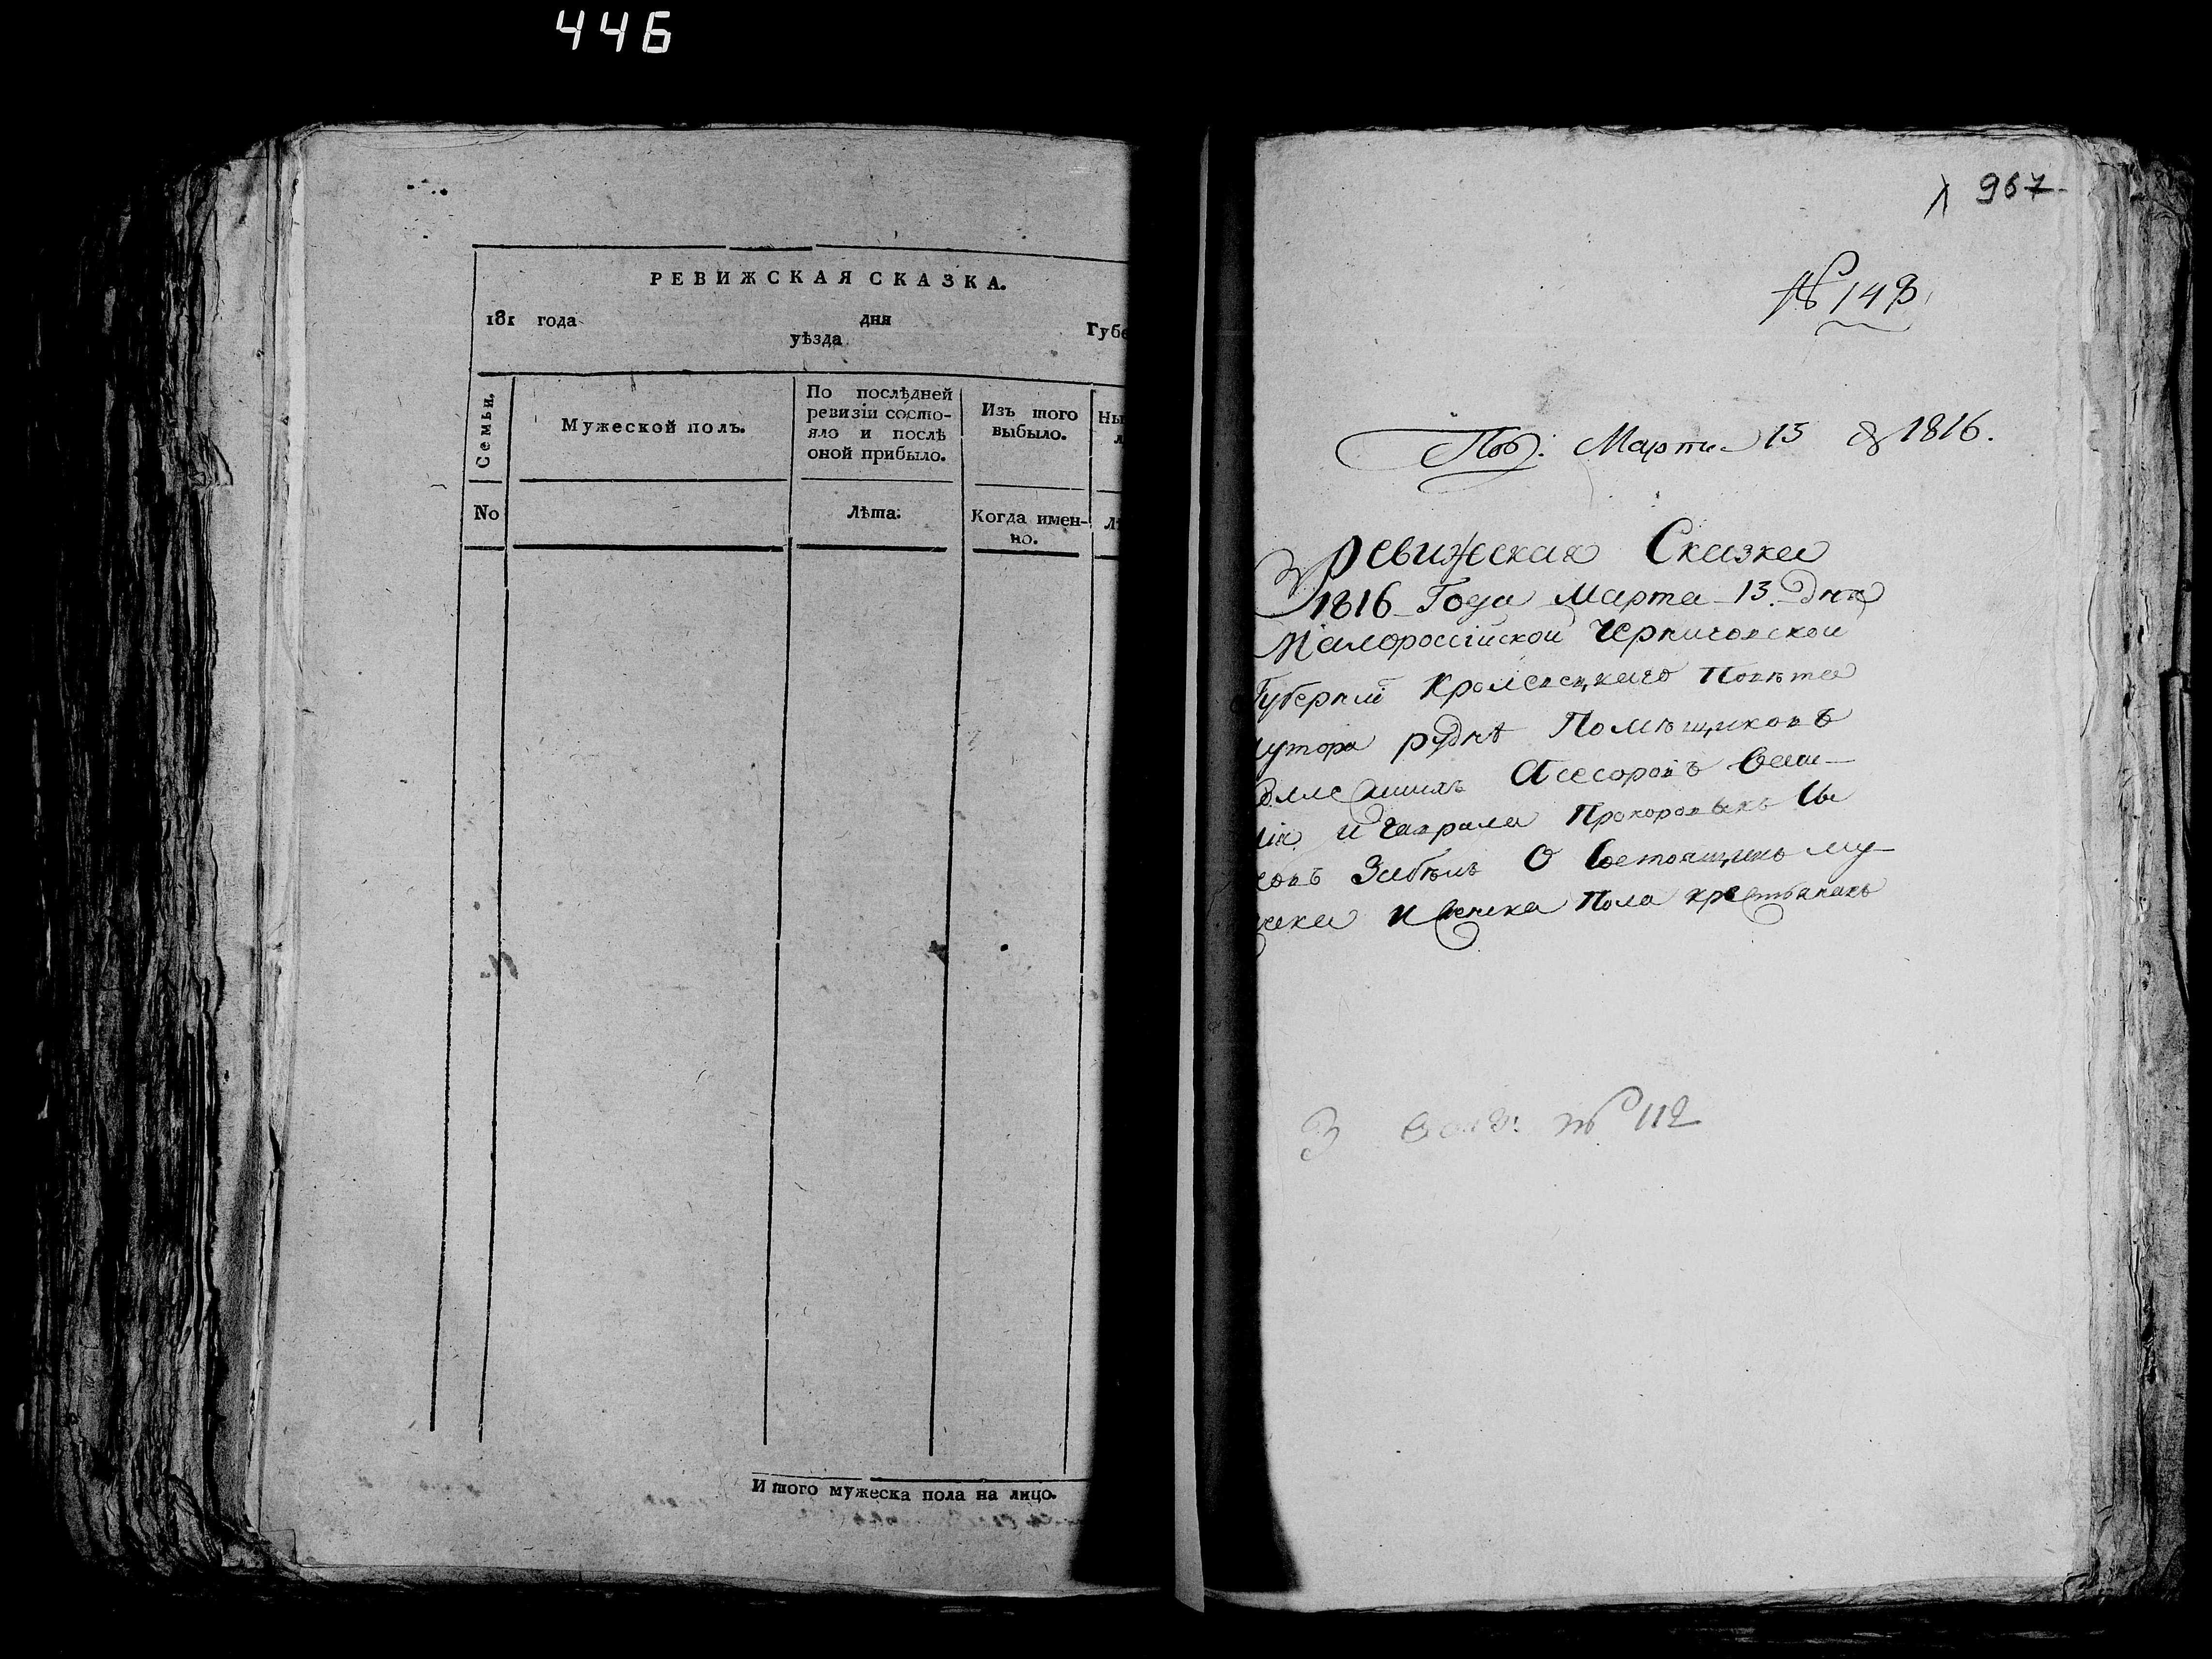 446
РЕВИЖСКАЯ СКАЗКА.
181 года дня
уѣзда Губе
Семьи.
Мужеской полъ.
По послѣдней
ревизіи состо-
яло и послѣ
оной прибыло.
Изъ того
выбыло.
Ны
No
Лѣта.
Когда имен-
но.
Итого мужеска пола на лицо.
967
№ 143
Под: Марта 13 1816.
Ревижская Сказка
1816 Года Марта 13 дня
Малороссійской Черниговской
Губерніи Кролевецкаго Повѣта
хутора руднѣ Помѣщиковъ
Асесоровъ
и Гаврила Прохоровыхъ Сы
новъ Забѣлъ О Состоящихъ му
жеска и женска Пола крестьянахъ
№ 112